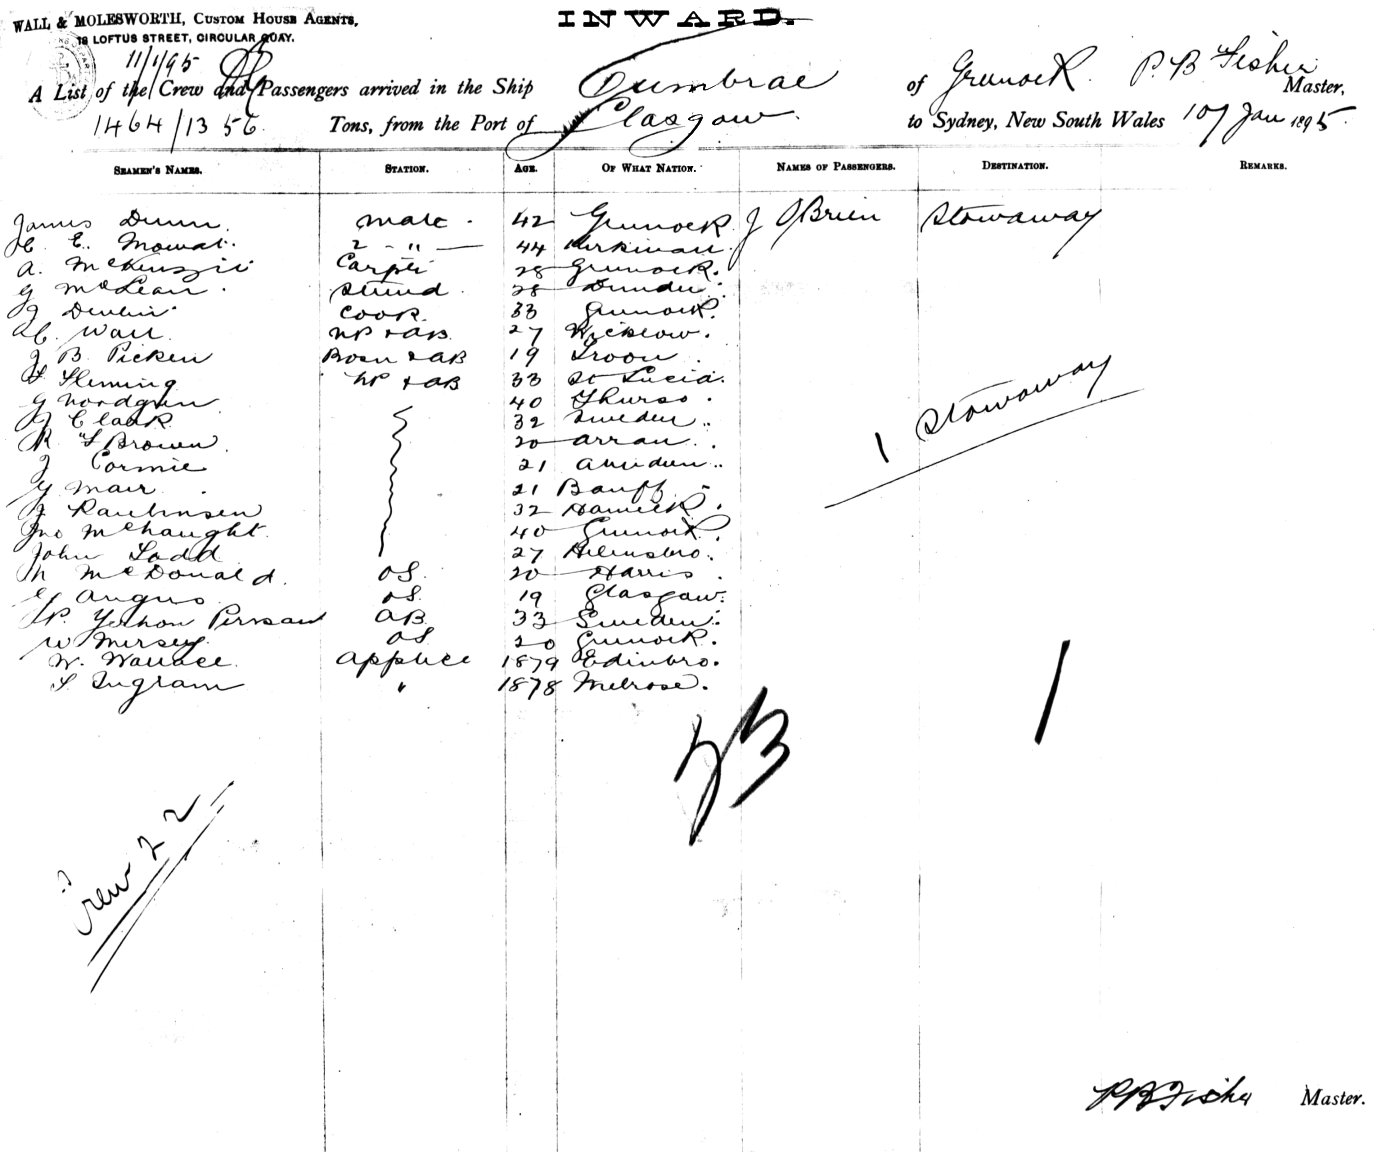 INWARD.
WALL & MOLESWORTH, CUSTOM HOUSE AGENTS,
18 LOFTUS STREET, CIRCULAR QUAY.
11/1/95
A List of the Crew and Passengers arrived in the Ship Cumbrae of Greenock P. B Fisher Master,
1464/1356 Tons, from the Port of Glasgow to Sydney, New South Wales 10/ Jan 1895.
SEAMEN'S NAMES. STATION. AGE. OF WHAT NATION. NAMES OF PASSENGERS. DESTINATION. REMARKS.
James Dunn. Mate. 42 Greenock J O'Brien Stowaway
E. Mowat. 2 - " - 44 Kirkwall
A. McKenzie Carptr 28 Greenock.
G McLean. Steward. 28 Dundee.
J Devlin Cook. 33 Greenock.
Wall AB. 27 Wicklow.
J B. Picken Bosn & AB 19 Troon.
Fleming & AB 33 St Lucia.
G Nordgren 40 Thurso.
J Clark 32 Sweden..
R F Brown. 20 Arran.
J Cormie 21 Aberdeen..
G Mair. 21 Banff.
J Rawlinson 32 Hawick.
Jno McNaught. 40 Greenock.
John Todd 27 Helensbro.
N McDonald. OS. 20 Harris.
Angus OS. 19 Glasgow.
P. AB. 33 Sweden.
W Mersey. OS 20 Greenock.
W. Wallace. Apptice 1879 Edinbro.
Ingram " 1878 Melrose.
1 Stowaway
23
1
Crew 22
P B Fisher Master.